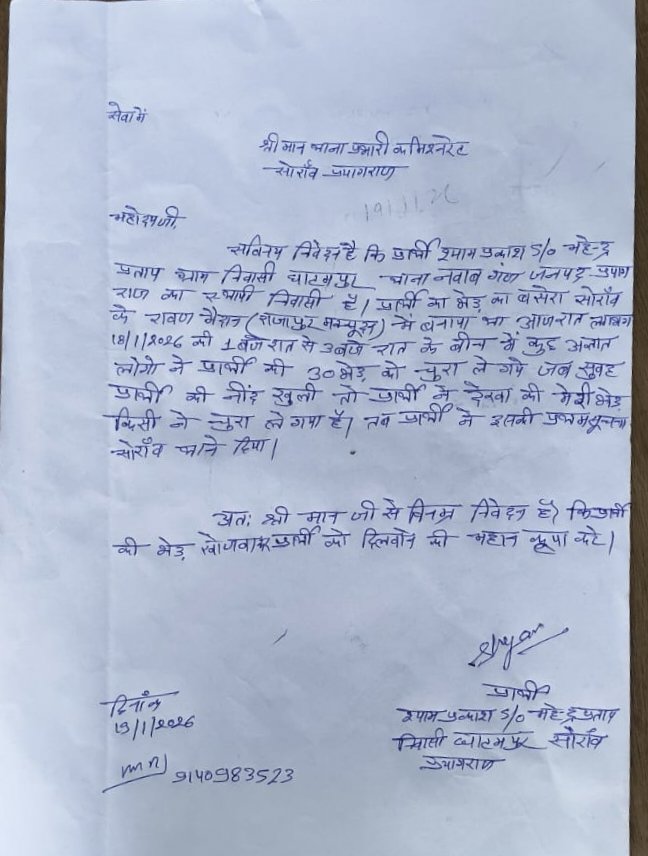 सेवा में
श्री मान थाना प्रभारी कमिश्नरेट
सोराँव प्रयागराज
महोदय जी,
सविनय निवेदन है कि प्रार्थी श्याम प्रकाश S/o महेन्द्र
प्रताप ग्राम निवासी घाटमपुर थाना नवाब गंज जनपद प्रयाग
राज का स्थायी निवासी है। प्रार्थी का भेड़ का बसेरा सोराँव
के रावण मैदान में बनाया था आजरात लगभग
18/1/2026 को 1 बजे रात से 3 बजे रात के बीच में कुछ अज्ञात
लोगो ने प्रार्थी की 30 भेड़ को चुरा ले गये जब सुबह
प्रार्थी की नींद खुली तो प्रार्थी ने देखा की मेरी भेड़
किसी ने चुरा ले गया है। तब प्रार्थी ने इसकी प्रथम सूचना
सोराँव थाने दिया।
अतः श्री मान जी से विनम्र निवेदन है। कि प्रार्थी
की भेड़ खोजवाकर प्रार्थी को दिलवाने की महान कृपा करे।
प्रार्थी
श्याम प्रकाश S/o महेन्द्र प्रताप
निवासी घाटमपुर सोराँव
प्रयागराज
दिनाँक
19/1/2026
9140983523